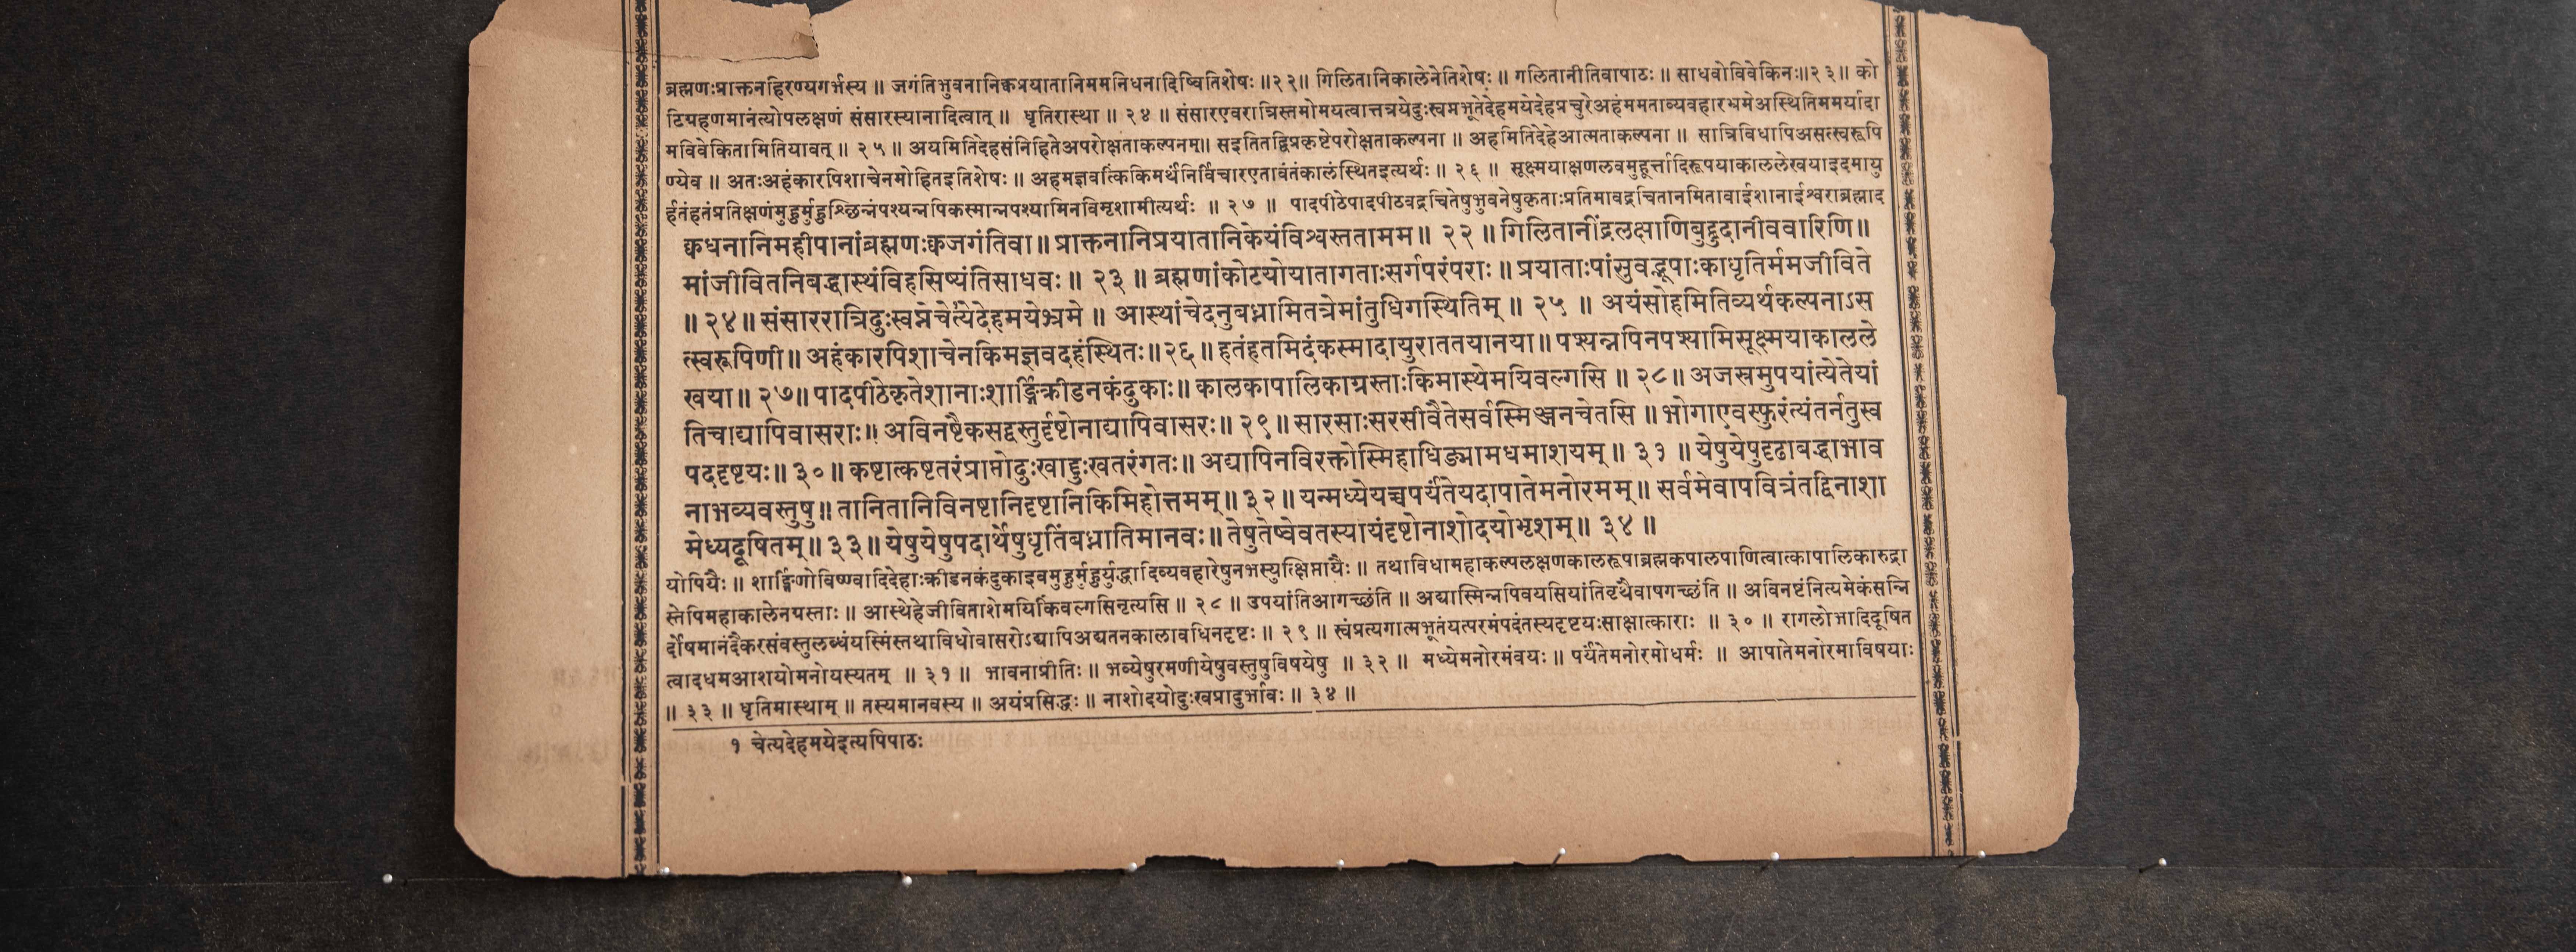 ब्रह्मणःप्राक्तनहिरण्यगर्भस्य ॥ जगंतिभुवनानिक्वप्रयातानिममनिधनादिष्वितिशेषः ॥२२॥ गिलितानिकालेनेतिशेषः ॥ गलितानीतिवापाठः ॥ साधवोविवेकिनः॥२३॥ को
टिग्रहणमानंत्योपलक्षणं संसारस्यानादित्वात् ॥ धृतिरास्था ॥ २४ ॥ संसारएवरात्रिस्तमोमयत्वात्तत्रयेदुःस्वप्नभूतेदेहमयेदेहप्रचुरेअहंममताव्यवहारभ्रमेअस्थितिममर्यादा
मविवेकितामितियावत् ॥ २५ ॥ अयमितिदेहसंनिहितेअपरोक्षताकल्पनम्॥ सइतितद्विप्रकृष्टेपरोक्षताकल्पना ॥ अहमितिदेहेआत्मताकल्पना ॥ सात्रिविधापिअसत्स्वरूपि
ण्येव ॥ अतःअहंकारपिशाचेनमोहितइतिशेषः ॥ अहमज्ञवत्किंकिमर्थंनिर्विचारएतावंतंकालंस्थितइत्यर्थः ॥ २६ ॥ सूक्ष्मयाक्षणलवमुहूर्त्तादिरूपयाकाललेखयाइदमायु
र्हतंहतंप्रतिक्षणंमुहुर्मुहुश्छिन्नंपश्यन्नपिकस्मान्नपश्यामिनविमृशामीत्यर्थः ॥ २७ ॥ पादपीठेपादपीठवद्रचितेषुभुवनेषुकृताःप्रतिमावद्रचितानमितावाईशानाईश्वराब्रह्माद
क्वधनानिमहीपानांब्रह्मणःक्वजगंतिवा॥ प्राक्तनानिप्रयातानिकेयंविश्वस्ततामम॥ २२ ॥ गिलितानींद्रलक्षाणिबुद्बुदानीववारिणि॥
मांजीवितनिबद्धास्थंविहसिष्यंतिसाधवः॥ २३ ॥ ब्रह्मणांकोटयोयातागताःसर्गपरंपराः॥ प्रयाताःपांसुवद्भूपाःकाधृतिर्ममजीविते
॥२४॥ संसाररात्रिदुःस्वप्नेचेत्येदेहमयेभ्रमे ॥ आस्थांचेदनुबध्नामितत्रेमांतुधिगस्थितिम् ॥ २५ ॥ अयंसोहमितिव्यर्थकल्पनाऽस
त्स्वरूपिणी॥ अहंकारपिशाचेनकिमज्ञवदहंस्थितः॥२६॥ हतंहतमिदंकस्मादायुराततयानया॥ पश्यन्नपिनपश्यामिसूक्ष्मयाकालले
खया॥ २७॥ पादपीठेकृतेशानाःशार्ङ्गिक्रीडनकंदुकाः॥ कालकापालिकाग्रस्ताःकिमास्थेमयिवल्गसि ॥ २८॥ अजस्रमुपयांत्येतेयां
तिचाद्यापिवासराः॥ अविनष्टैकसद्वस्तुर्दृष्टोनाद्यापिवासरः॥ २९॥ सारसाःसरसीवैतेसर्वस्मिञ्जनचेतसि ॥ भोगाएवस्फुरंत्यंतर्नतुस्व
पददृष्टयः॥ ३०॥ कष्टात्कष्टतरंप्राप्तोदुःखाद्दुःखतरंगतः॥ अद्यापिनविरक्तोस्मिहाधिङ्मामधमाशयम्॥ ३१ ॥ येषुयेषुदृढाबद्धाभाव
नाभव्यवस्तुषु॥ तानितानिविनष्टानिदृष्टानिकिमिहोत्तमम्॥ ३२॥ यन्मध्येयच्चपर्यंतेयदापातेमनोरमम्॥ सर्वमेवापवित्रंतद्विनाशा
मेध्यदूषितम्॥ ३३॥ येषुयेषुपदार्थेषुधृतिंबध्नातिमानवः॥ तेषुतेष्वेवतस्यायंदृष्टोनाशोदयोभृशम्॥ ३४॥
योपियैः ॥ शार्ङ्गिणोविष्ण्वादिदेहाःक्रीडनकंदुकाइवमुहुर्मुहुर्युद्धादिव्यवहारेषुनभस्युत्क्षिप्तायैः ॥ तथाविधामहाकल्पलक्षणकालरूपाब्रह्मकपालपाणित्वात्कापालिकारुद्रा
स्तेपिमहाकालेनग्रस्ताः ॥ आस्थेहेजीविताशेमयिकिंवल्गसिनृत्यसि ॥ २८ ॥ उपयांतिआगच्छंति ॥ अद्यास्मिन्नपिवयसियांतिवृथैवापगच्छंति ॥ अविनष्टंनित्यमेकंसन्नि
र्दोषमानंदैकरसंवस्तुलब्धंयस्मिंस्तथाविधोवासरोऽद्यापिअद्यतनकालावधिनदृष्टः ॥ २९ ॥ स्वंप्रत्यगात्मभूतंयत्परमंपदंतस्यदृष्टयःसाक्षात्काराः ॥ ३० ॥ रागलोभादिदूषित
त्वादधमआशयोमनोयस्यतम् ॥ ३१ ॥ भावनाप्रीतिः ॥ भव्येषुरमणीयेषुवस्तुषुविषयेषु ॥ ३२ ॥ मध्येमनोरमंवयः ॥ पर्यंतेमनोरमोधर्मः ॥ आपातेमनोरमाविषयाः
॥ ३३ ॥ धृतिमास्थाम् ॥ तस्यमानवस्य ॥ अयंप्रसिद्धः ॥ नाशोदयोदुःखप्रादुर्भावः ॥ ३४ ॥
१ चेत्यदेहमयेइत्यपिपाठः